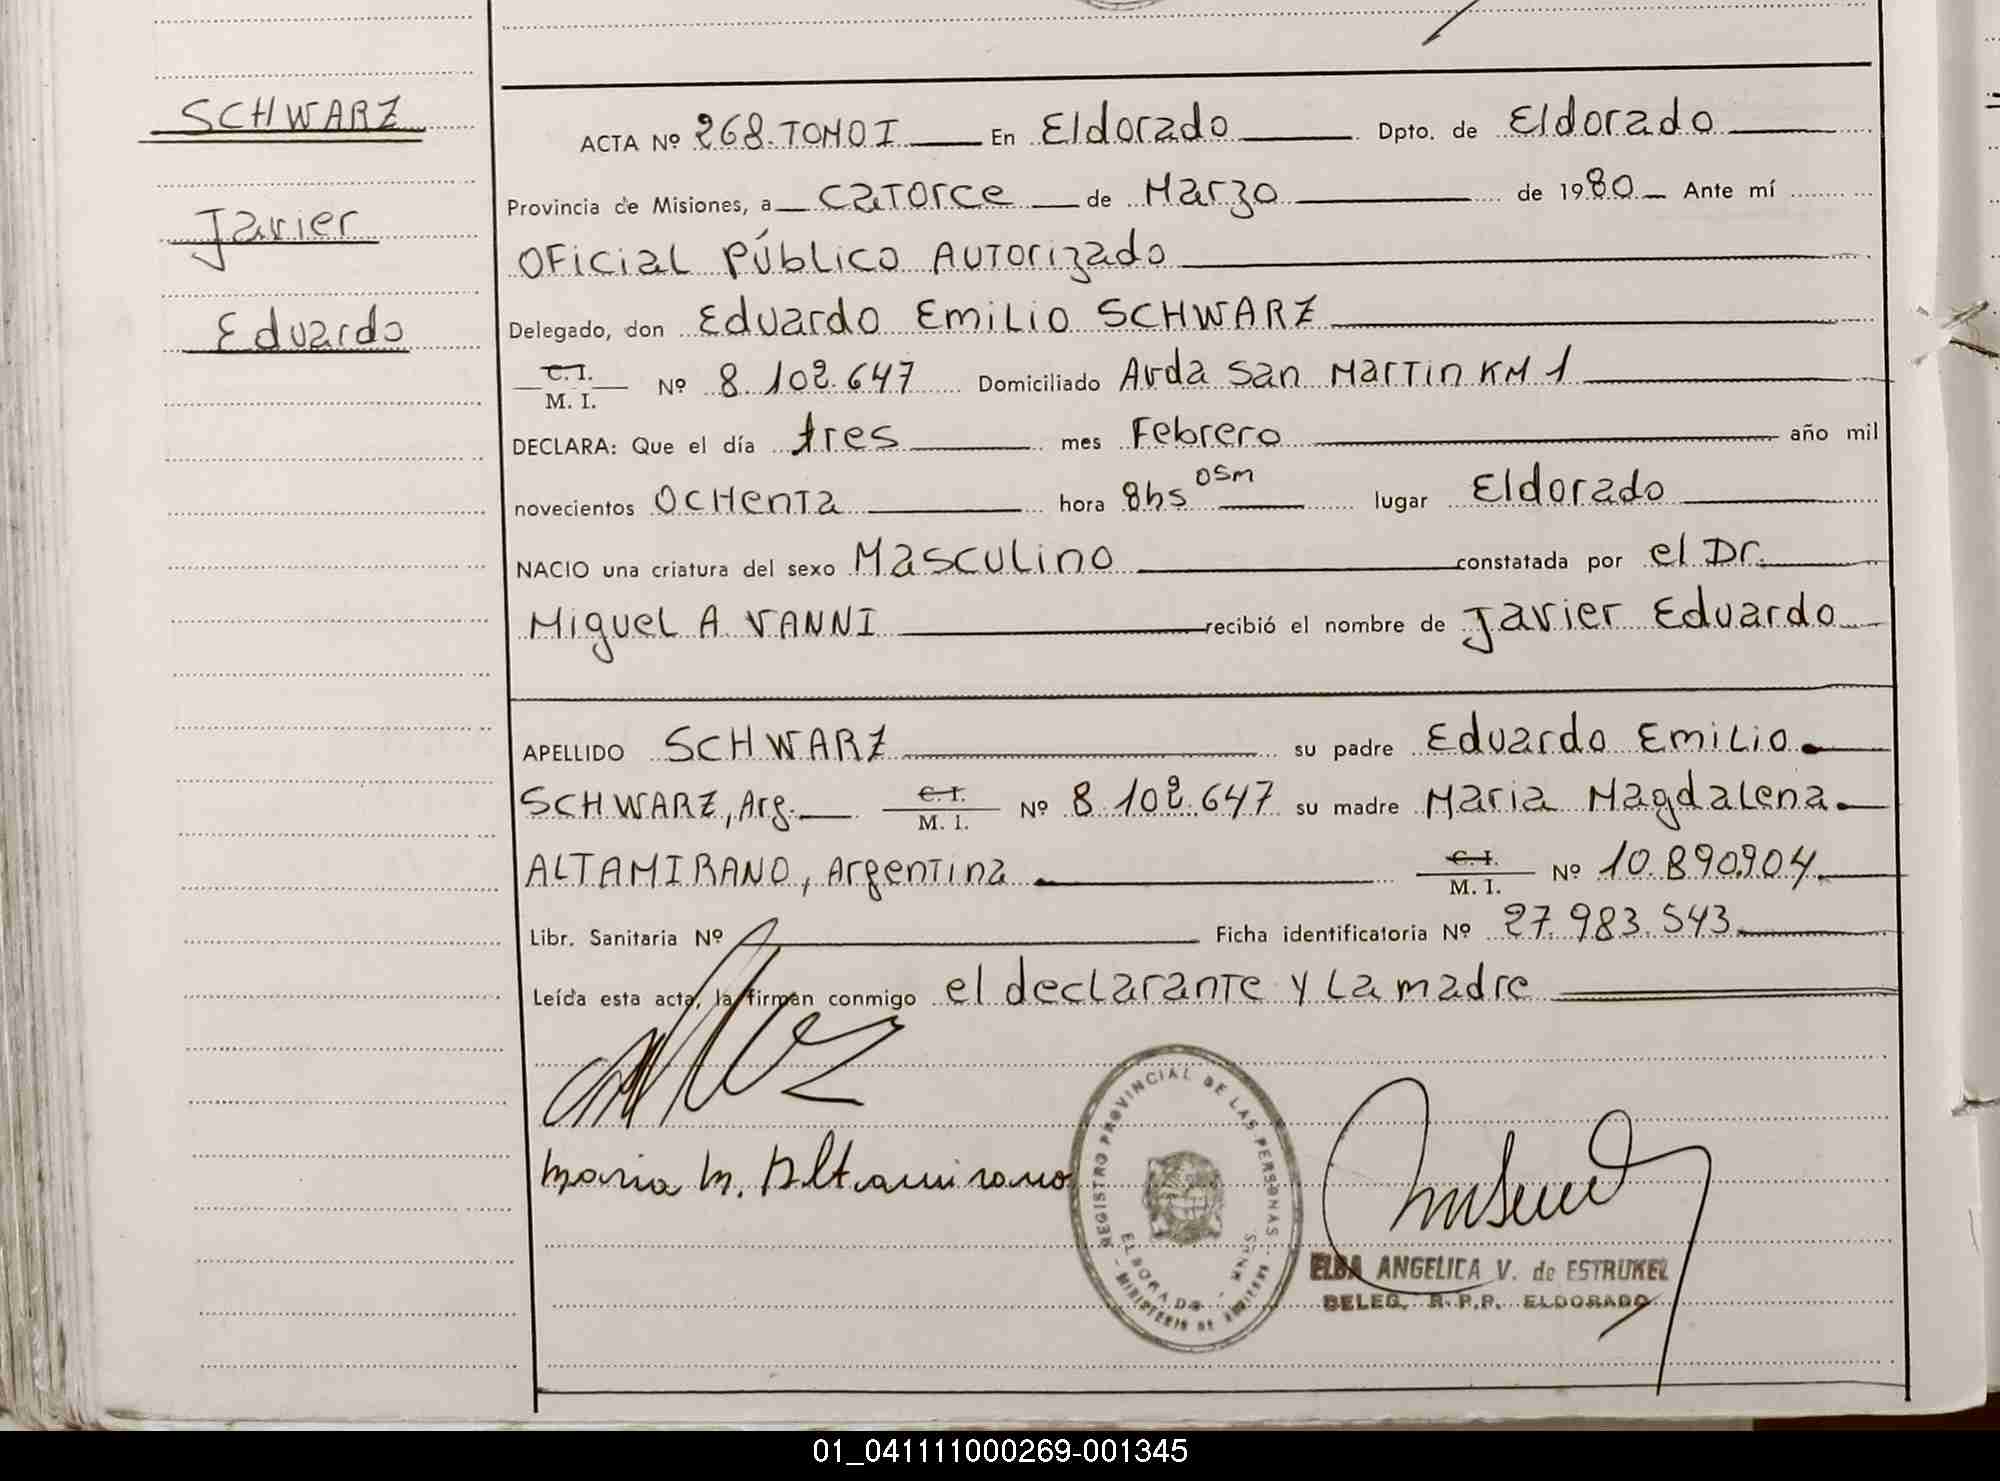 SCHWARZ
Javier
Eduardo
ACTA Nº 268. TOMO I En Eldorado Dpto. de Eldorado
Provincia de Misiones, a catorce de Marzo de 1980 Ante mí
Oficial Público Autorizado
Delegado, don Eduardo Emilio SCHWARZ
C. I.
M. I. Nº 8.102.647 Domiciliado Avda San Martin KM 1
DECLARA: Que el día tres mes Febrero año mil
novecientos ochenta hora 8hs 05m lugar Eldorado
NACIO una criatura del sexo Masculino constatada por el Dr.
Miguel A VANNI recibió el nombre de Javier Eduardo
APELLIDO SCHWARZ su padre Eduardo Emilio
SCHWARZ, Arg. C. I. M. I. Nº 8.102.647 su madre Maria Magdalena
ALTAMIRANO, Argentina C. I. M. I. Nº 10.890.904
Libr. Sanitaria Nº Ficha identificatoria Nº 27.983.543
Leída esta acta, la firman conmigo el declarante y la madre
Maria M. Altamirano
REGISTRO PROVINCIAL DE LAS PERSONAS
ELDORADO - MNES
ELBA ANGELICA V. de ESTRUKEL
DELEG. R.P.P. ELDORADO
01_041111000269-001345